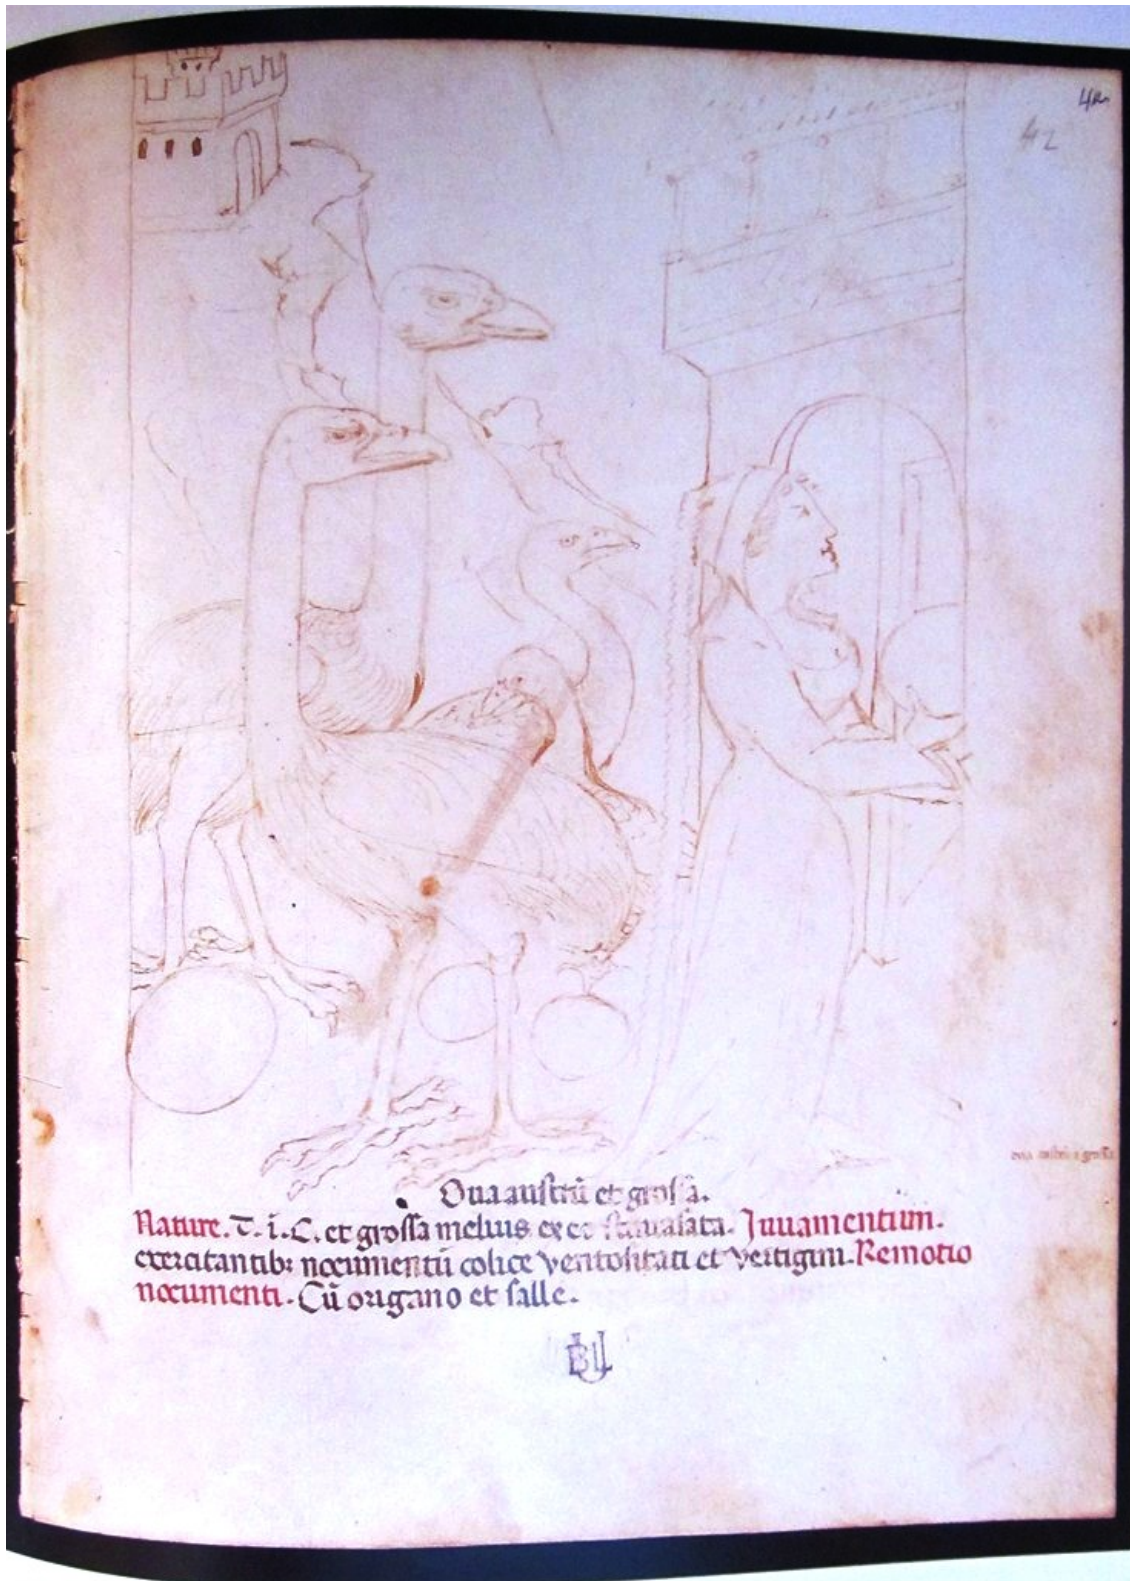 42
42
Oua austrū et grossa.
Nature. c. i. C. et grossa melius ex eo Juuamentum.
exercitantib; nocumentū colice ventositati et vertigini. Remotio
nocumenti. Cū origano et salle.